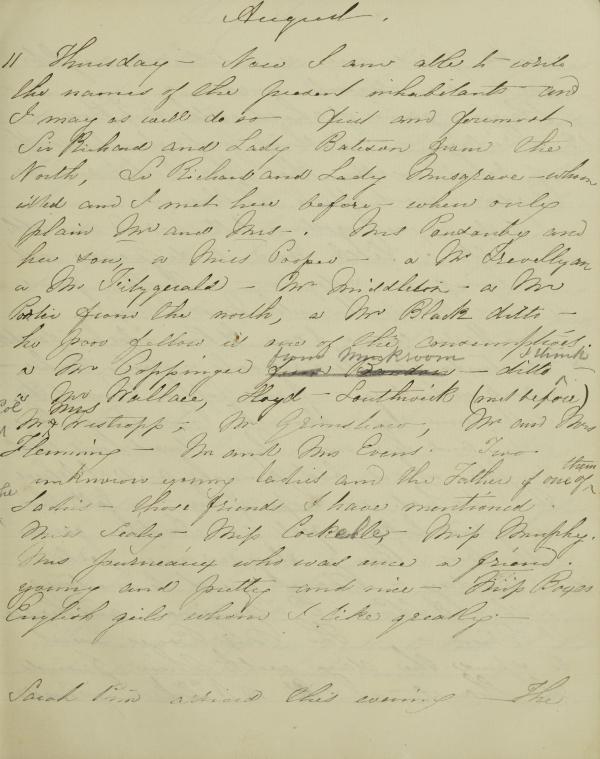 August.
11 Thursday – Now I am able to write
the names of the present inhabitants and
I may as well do so – first and foremost
Sir Richard and Lady Bateson from the
North, Sir Richard and Lady Musgrave – whom
and I met here before – when only
plain Mr and Mrs –. Mrs and
her son, a Miss Cooper – a Mr Trevellyan
a Mr Fitzgerald – Mr Middleton – a Mr
Porter from the north, a Mr Black ditto –
he poor fellow is one of the consumptives.
a Mr Coppinger from Bandon – ditto –
from Monkroom I think
a Mr Wallace, Lloyd – Southwick (met before)
Col Mrs
Mr Westropp, Mr Grimshaw, Mr and Mrs
Fleming – Mr and Mrs Evans. Two
unknown young ladies and the Father of one of
them
the
Ladies – those friends I have mentioned.
Miss Sealy – Miss – Miss Murphy.
Mrs who was once a friend.
young and pretty and nice – Miss Boyes
English girls whom I like greatly –
Sarah arrived this evening – The